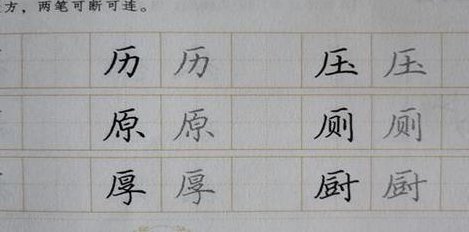 方，两笔可断可连。
历 历 压 压
原 原 厕 厕
厚 厚 厨 厨